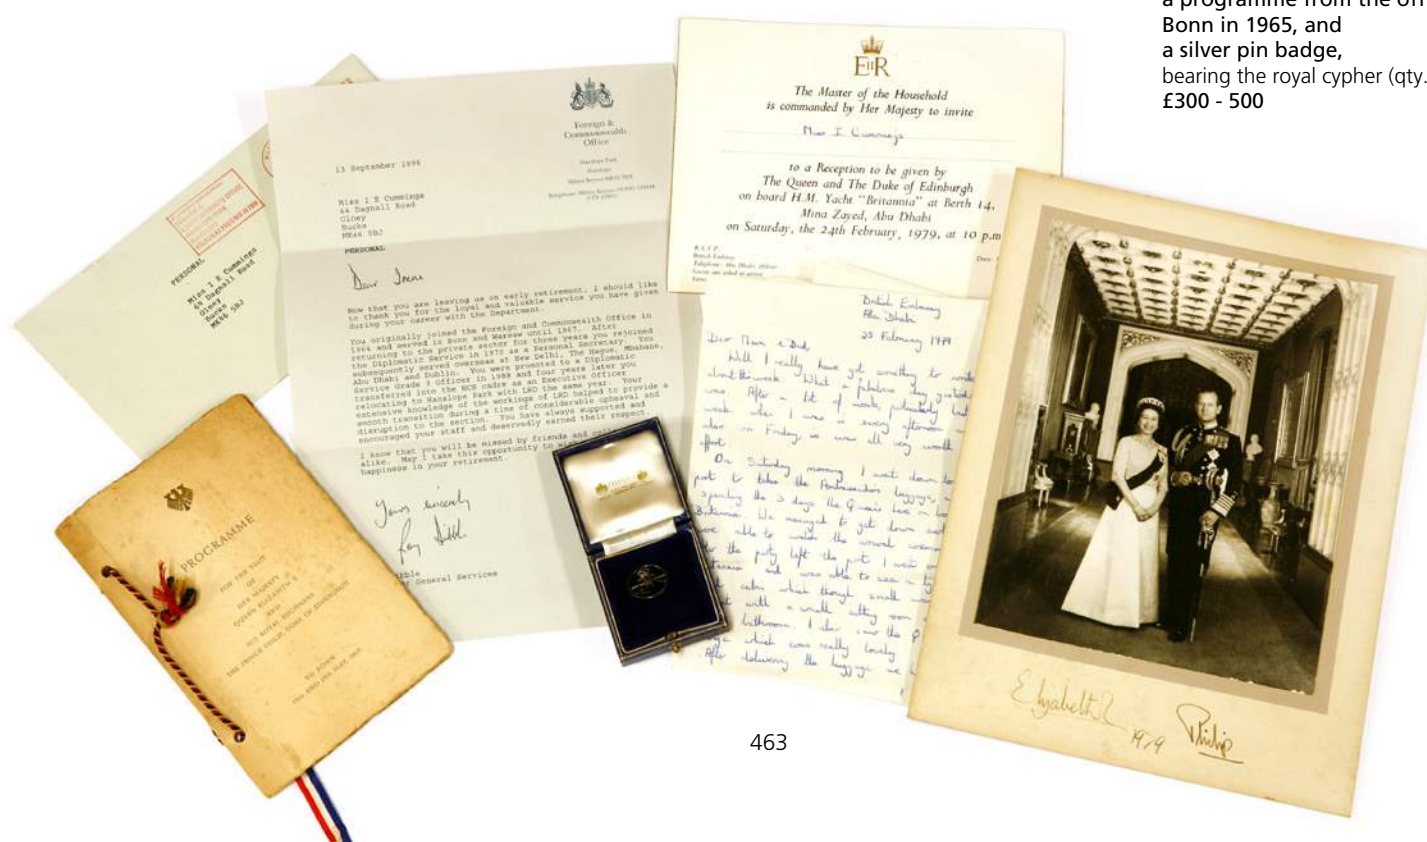 a programme from the off
Bonn in 1965, and
a silver pin badge,
bearing the royal cypher (qty.
£300 - 500
PERSONAL
Miss I E Cummings
64 Dagnall Road
Olney
Bucks
MK46 5BJ
Foreign &
Commonwealth
Office
Hanslope Park
Hanslope
Milton Keynes MK19 7BH
13 September 1996
Miss I E Cummings
64 Dagnall Road
Olney
Bucks
MK46 5BJ
PERSONAL
Dear Irene
Now that you are leaving us on early retirement, I should like
to thank you for the loyal and valuable service you have given
during your career with the Department.
You originally joined the Foreign and Commonwealth Office in
1964 and served in Bonn and Warsaw until 1967. After
returning to the private sector for three years you rejoined
the Diplomatic Service in 1970 as a Personal Secretary. You
subsequently served overseas at New Delhi, The Hague, Mbabane,
Abu Dhabi and Dublin. You were promoted to a Diplomatic
Service Grade 9 Officer in 1988 and four years later you
transferred into the HCS cadre as an Executive Officer
relocating to Hanslope Park with LRD the same year. Your
extensive knowledge of the workings of LRD helped to provide a
smooth transition during a time of considerable upheaval and
disruption to the section. You have always supported and
encouraged your staff and deservedly earned their respect.
I know that you will be missed by friends and
alike. May I take this opportunity to
happiness in your retirement.
Yours sincerely
General Services
EIIR
The Master of the Household
is commanded by Her Majesty to invite
Miss I Cummings
to a Reception to be given by
The Queen and The Duke of Edinburgh
on board H.M. Yacht "Britannia" at Berth 14,
Mina Zayed, Abu Dhabi
on Saturday, the 24th February, 1979, at 10 p.m
R.S.V.P.
British Embassy
British Embassy
Abu Dhabi
25 February 1979
Dear Mum & Dad,
Well I really have got something to write
about this week. What a fabulous day yesterday
was. After a lot of work, particularly last
week when I was in every afternoon
also on Friday, it was all very worth
effort.
On Saturday morning I went down
port to take the Ambassador's luggage,
spending the 3 days the Queen here on
Britannia. We managed to get down
were able to watch the arrival
the party left the port I went
and was able to see
cabin which though small
with a small sitting room
bathroom. I also saw the
which was really lovely
After delivering the luggage we
PROGRAMME
FOR THE VISIT
OF
HER MAJESTY
QUEEN ELIZABETH II
AND
HIS ROYAL HIGHNESS
THE PRINCE PHILIP, DUKE OF EDINBURGH
TO BONN
Elizabeth R
1979
Philip
463